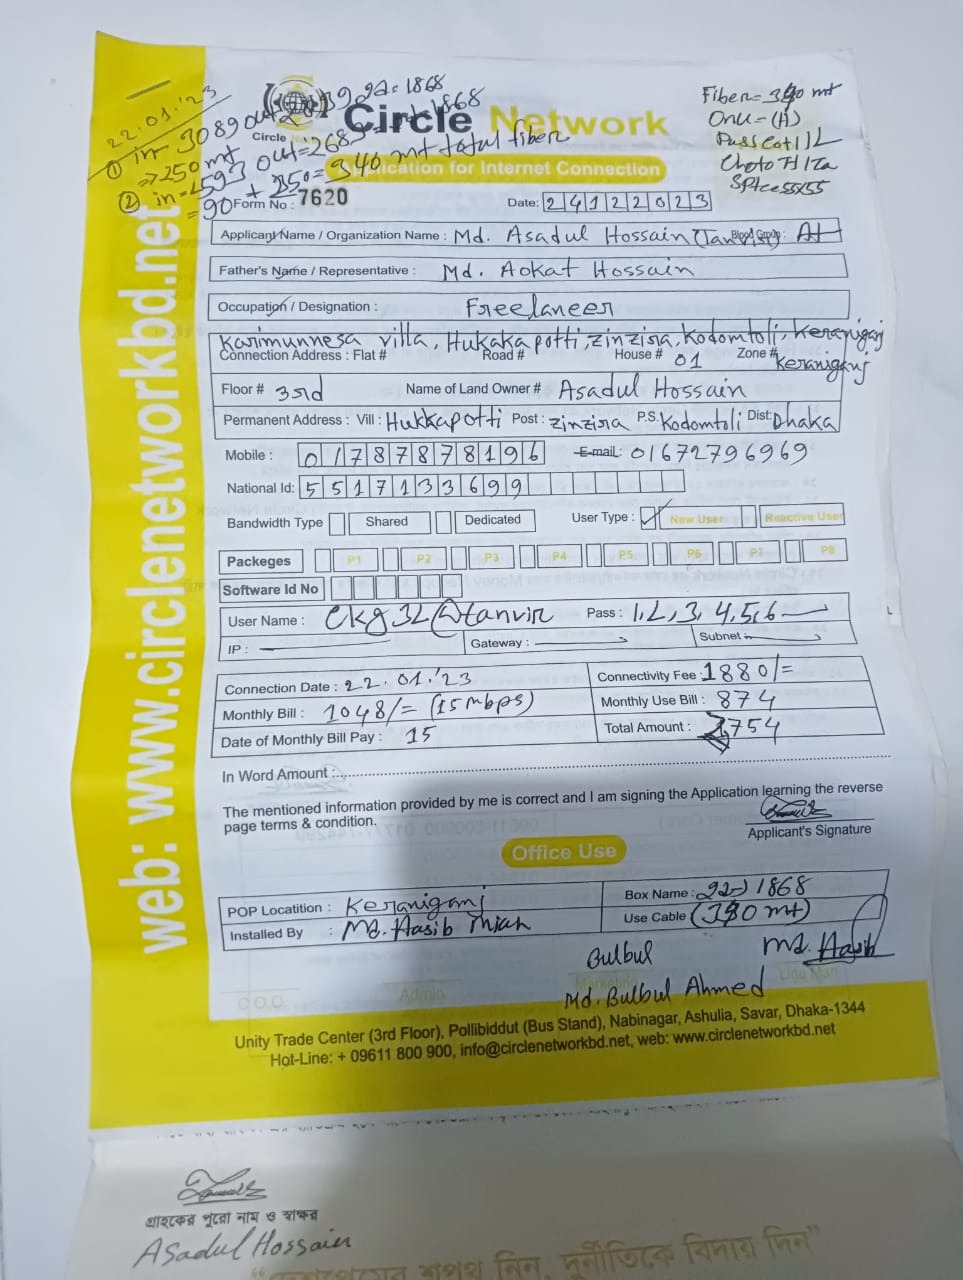 22.01.'23
① in- 3089
⇒ 250 mt
② in- 2593 out = 268
= 90 + 250 = 340 mt total fiber
Fiber = 340 mt
Onu = (H)
Circle Network
Circle
Application for Internet Connection
Form No : 7620
Date: 24122023
Applicant Name / Organization Name : Md. Asadul Hossain (Tanvir) Blood Group : A+
Father's Name / Representative : Md. Aokat Hossain
Occupation / Designation : Freelancer
Karimunnesa villa, Hukakapotti, zinzira, Kodomtoli, Keraniganj
Connection Address : Flat # Road # House # 01 Zone # Keraniganj
Floor # 3rd Name of Land Owner # Asadul Hossain
Permanent Address : Vill : Hukkapotti Post : zinzira P.S. Kodomtoli Dist: Dhaka
Mobile : 01787878196 E-mail: 01672796969
National Id: 5517133699
Bandwidth Type Shared Dedicated User Type : ✓ New User Reactive User
Packeges P1 P2 P3 P4 P5 P6 P7 P8
Software Id No
User Name : ckg32@tanvir Pass : 1,2,3,4,5,6
IP : Gateway : Subnet :
Connection Date : 22.01.'23 Connectivity Fee : 1880/=
Monthly Bill : 1048/= (15mbps) Monthly Use Bill : 874
Date of Monthly Bill Pay : 15 Total Amount : 2754
In Word Amount :
The mentioned information provided by me is correct and I am signing the Application learning the reverse
page terms & condition.
Applicant's Signature
Office Use
POP Locatition : Keraniganj Box Name : 22-) 1868
Installed By : Md. Hasib Miah Use Cable (340 mt)
Bulbul Md. Hasib
Md. Bulbul Ahmed
C.O.O. Admin Marketing Line Man
Unity Trade Center (3rd Floor), Pollibiddut (Bus Stand), Nabinagar, Ashulia, Savar, Dhaka-1344
Hot-Line: + 09611 800 900, info@circlenetworkbd.net, web: www.circlenetworkbd.net
web: www.circlenetworkbd.net
গ্রাহকের পুরো নাম ও স্বাক্ষর
Asadul Hossain
শপথ নিন, দুর্নীতিকে বিদায় দিন"